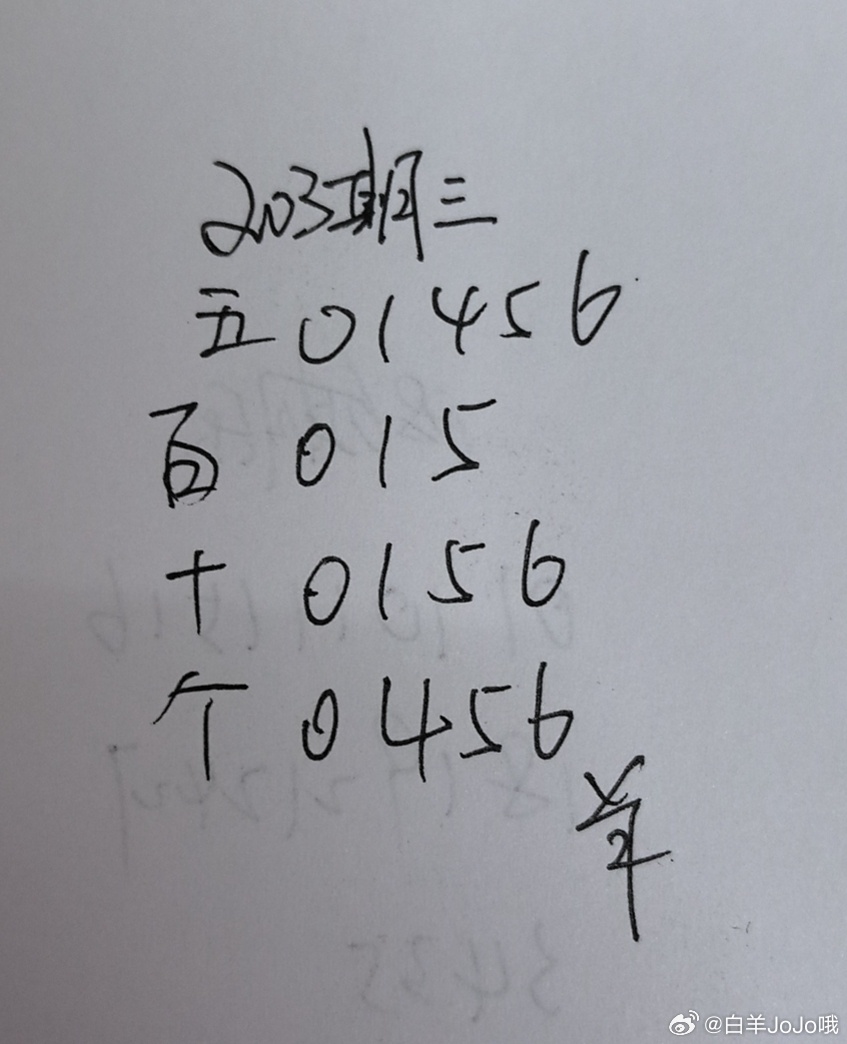 203期三
五 01456
百 015
十 0156
个 0456
@白羊JoJo哦